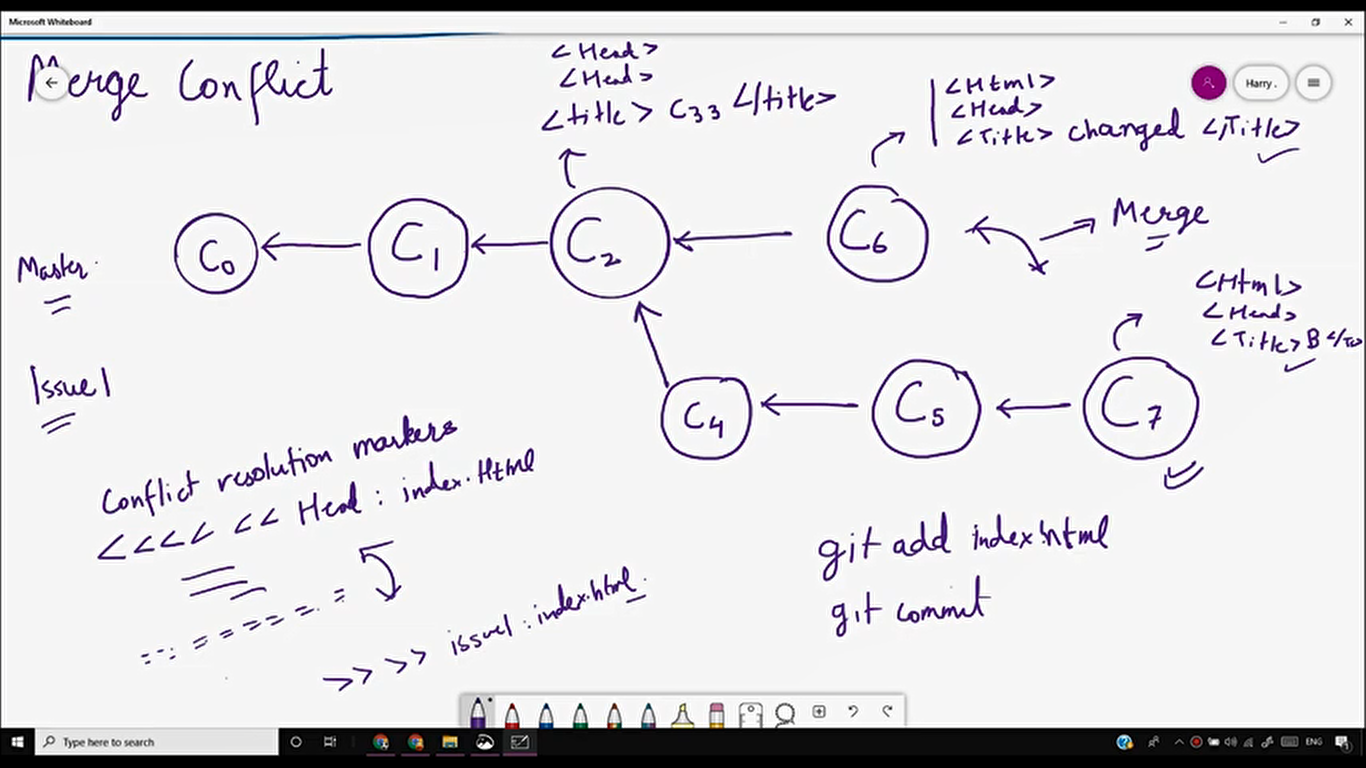 Microsoft Whiteboard
Merge Conflict
<Head>
<Head>
<title> C33 </title>
<Html>
<Head>
<Title> changed </Title>
Harry .
Master
C0
C1
C2
C6
Merge
<Html>
<Head>
<Title> B
Issue1
C4
C5
C7
Conflict resolution markers
<<<< << Head : index.Html
=======
>>>> issue1 : index.html
git add index.html
git commit
Type here to search
ENG